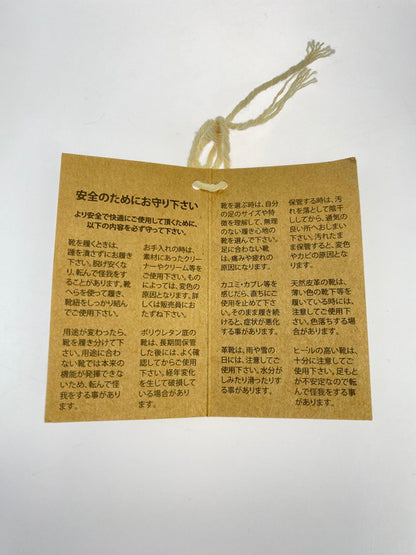 安全のためにお守り下さい
より安全で快適にご使用して頂くために、
以下の内容を必ず守って下さい。
靴を履くときは、
踵を潰さずにお履き
下さい。脱げ安くな
り、転んで怪我をす
ることがあります。靴
ヘらを使って履き、
靴紐をしっかり結ん
でご使用下さい。
用途が変わったら、
靴を履き分けて下
さい。用途に合わ
ない靴では本来の
機能が発揮できな
いため、転んで怪
我をする事があり
ます。
お手入れの時は、
素材にあったクリー
ナーやクリーム等を
ご使用下さい。もの
によっては、変色の
原因となります。詳
しくは販売員にお
たずね下さい。
ポリウレタン底の
靴は、長期間保管
した後には、よく確
認してからご使用
下さい。経年変化
を生じて破損して
いる場合があり
ます。
靴を選ぶ時は、自分
の足のサイズや特
徴を理解して、無理
のない履き心地の
靴を選んで下さい。
足に合わない靴
は、痛みや疲れの
原因になります。
カユミ・カブレ等を
感じたら、直ちにご
使用を止めて下さ
い。そのまま履き続
けると、症状が悪化
する事があります。
革靴は、雨や雪の
日には、注意してご
使用下さい。水分が
しみたり滑ったりす
る事があります。
保管する時は、汚
れを落として陰干
ししてから、通気の
良い所へおしまい
下さい。汚れたま
ま保管すると、変色
やカビの原因とな
ります。
天然皮革の靴は、
薄い色の靴下等を
履いている時には、
注意してご使用下
さい。色落ちする場
合があります。
ヒールの高い靴は、
十分に注意してご
使用下さい。足もと
が不安定なので転
んで怪我をする事
があります。